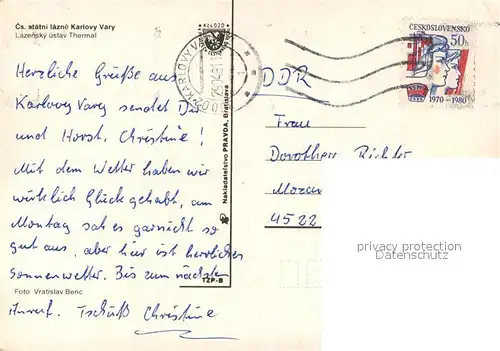 Čs. státní lázně Karlovy Vary
Lázeňský ústav Thermal
Herzliche Grüße aus
Karlovy Vary sendet Dir
und Horst, Christine!
Mit dem Wetter haben wir
wirklich Glück gehabt, am
Montag sah es garnicht so
gut aus, aber hier ist herrliches
Sonnenwetter. Bis zum nächsten
Foto Vratislav Benc
Anruf. Tschüß Christine
Kčs 0,20
Nakladatelstvo PRAVDA, Bratislava
TZP-B
KARLOVY VARY
ČESKOSLOVENSKO
50h
1970 - 1980
DDR
Frau
Dorothea Richter
4522
privacy protection
Datenschutz